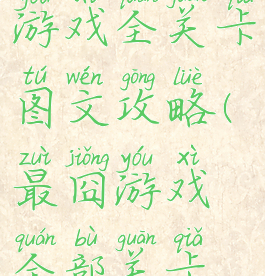 游戏全关卡
tú wén gōng lüè
图文攻略(
zuì jiǒng yóu xì
最囧游戏
quán bù guān qiǎ
全部关卡